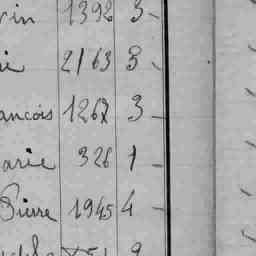 1392 3 -
2163 3 -
ancois 1267 3 -
arie 326 1 -
Pierre 1945 4 -